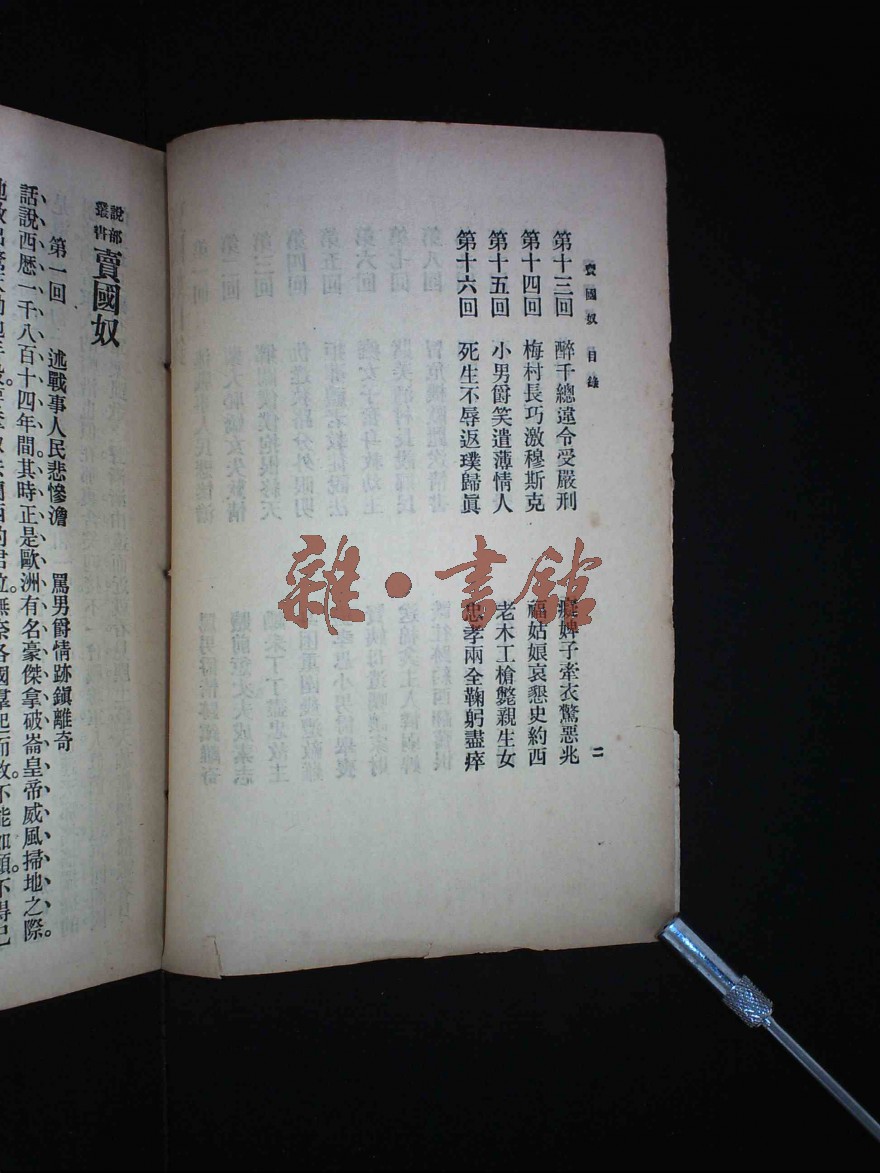 賣國奴 目錄
二
第十三回 醉千總違令受嚴刑 癡婢子牽衣驚惡兆
第十四回 梅村長巧激穆斯克 福姑娘哀懇史約西
第十五回 小男爵笑遣薄情人 老木工槍斃親生女
第十六回 死生不辱返璞歸眞 忠孝兩全鞠躬盡瘁
雜·書館
說部叢書 賣國奴
第一回 述戰事人民悲慘澹 罵男爵情跡鎭離奇
話說西歷一千八百十四年間。其時正是歐洲有名豪傑拿破崙皇帝威風掃地之際。
的君位。無奈各國羣起而攻。不能如願。不得已